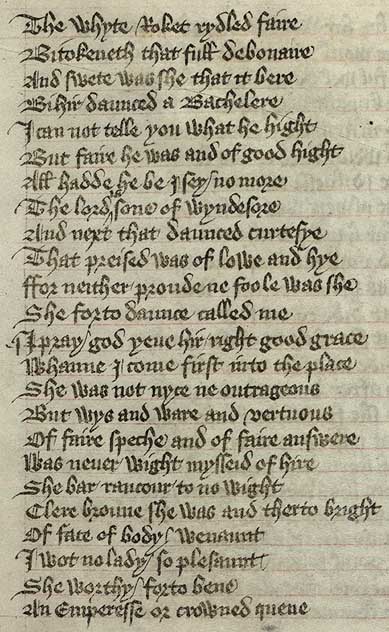 The whyte Roket rydled faire
Bitokeneth that full debonaire
And swete was she that it bere
Bihir daunced a Bachelere
I can not telle you what he hight
But faire he was and of good hight
All hadde he be I sey / no more
The lordis sone of wyndesore
And next that daunced curtesye
That preised was of lowe and hye
ffor neither proude ne foole was she
She forto daunce called me
¶ I pray / god yeve hir right good grace
Whanne I come first into the place
She was not nyce ne outrageous
But wys and ware and vertuous
Of faire speche and of faire answere
Was never wight mysseid of hire
She bar rancour to no wight
Clere broune she was and therto bright
Of face of body / wenaunt
I wot no lady / so plesaunt
She worthy / forto bene
An Emperesse or crowned quene